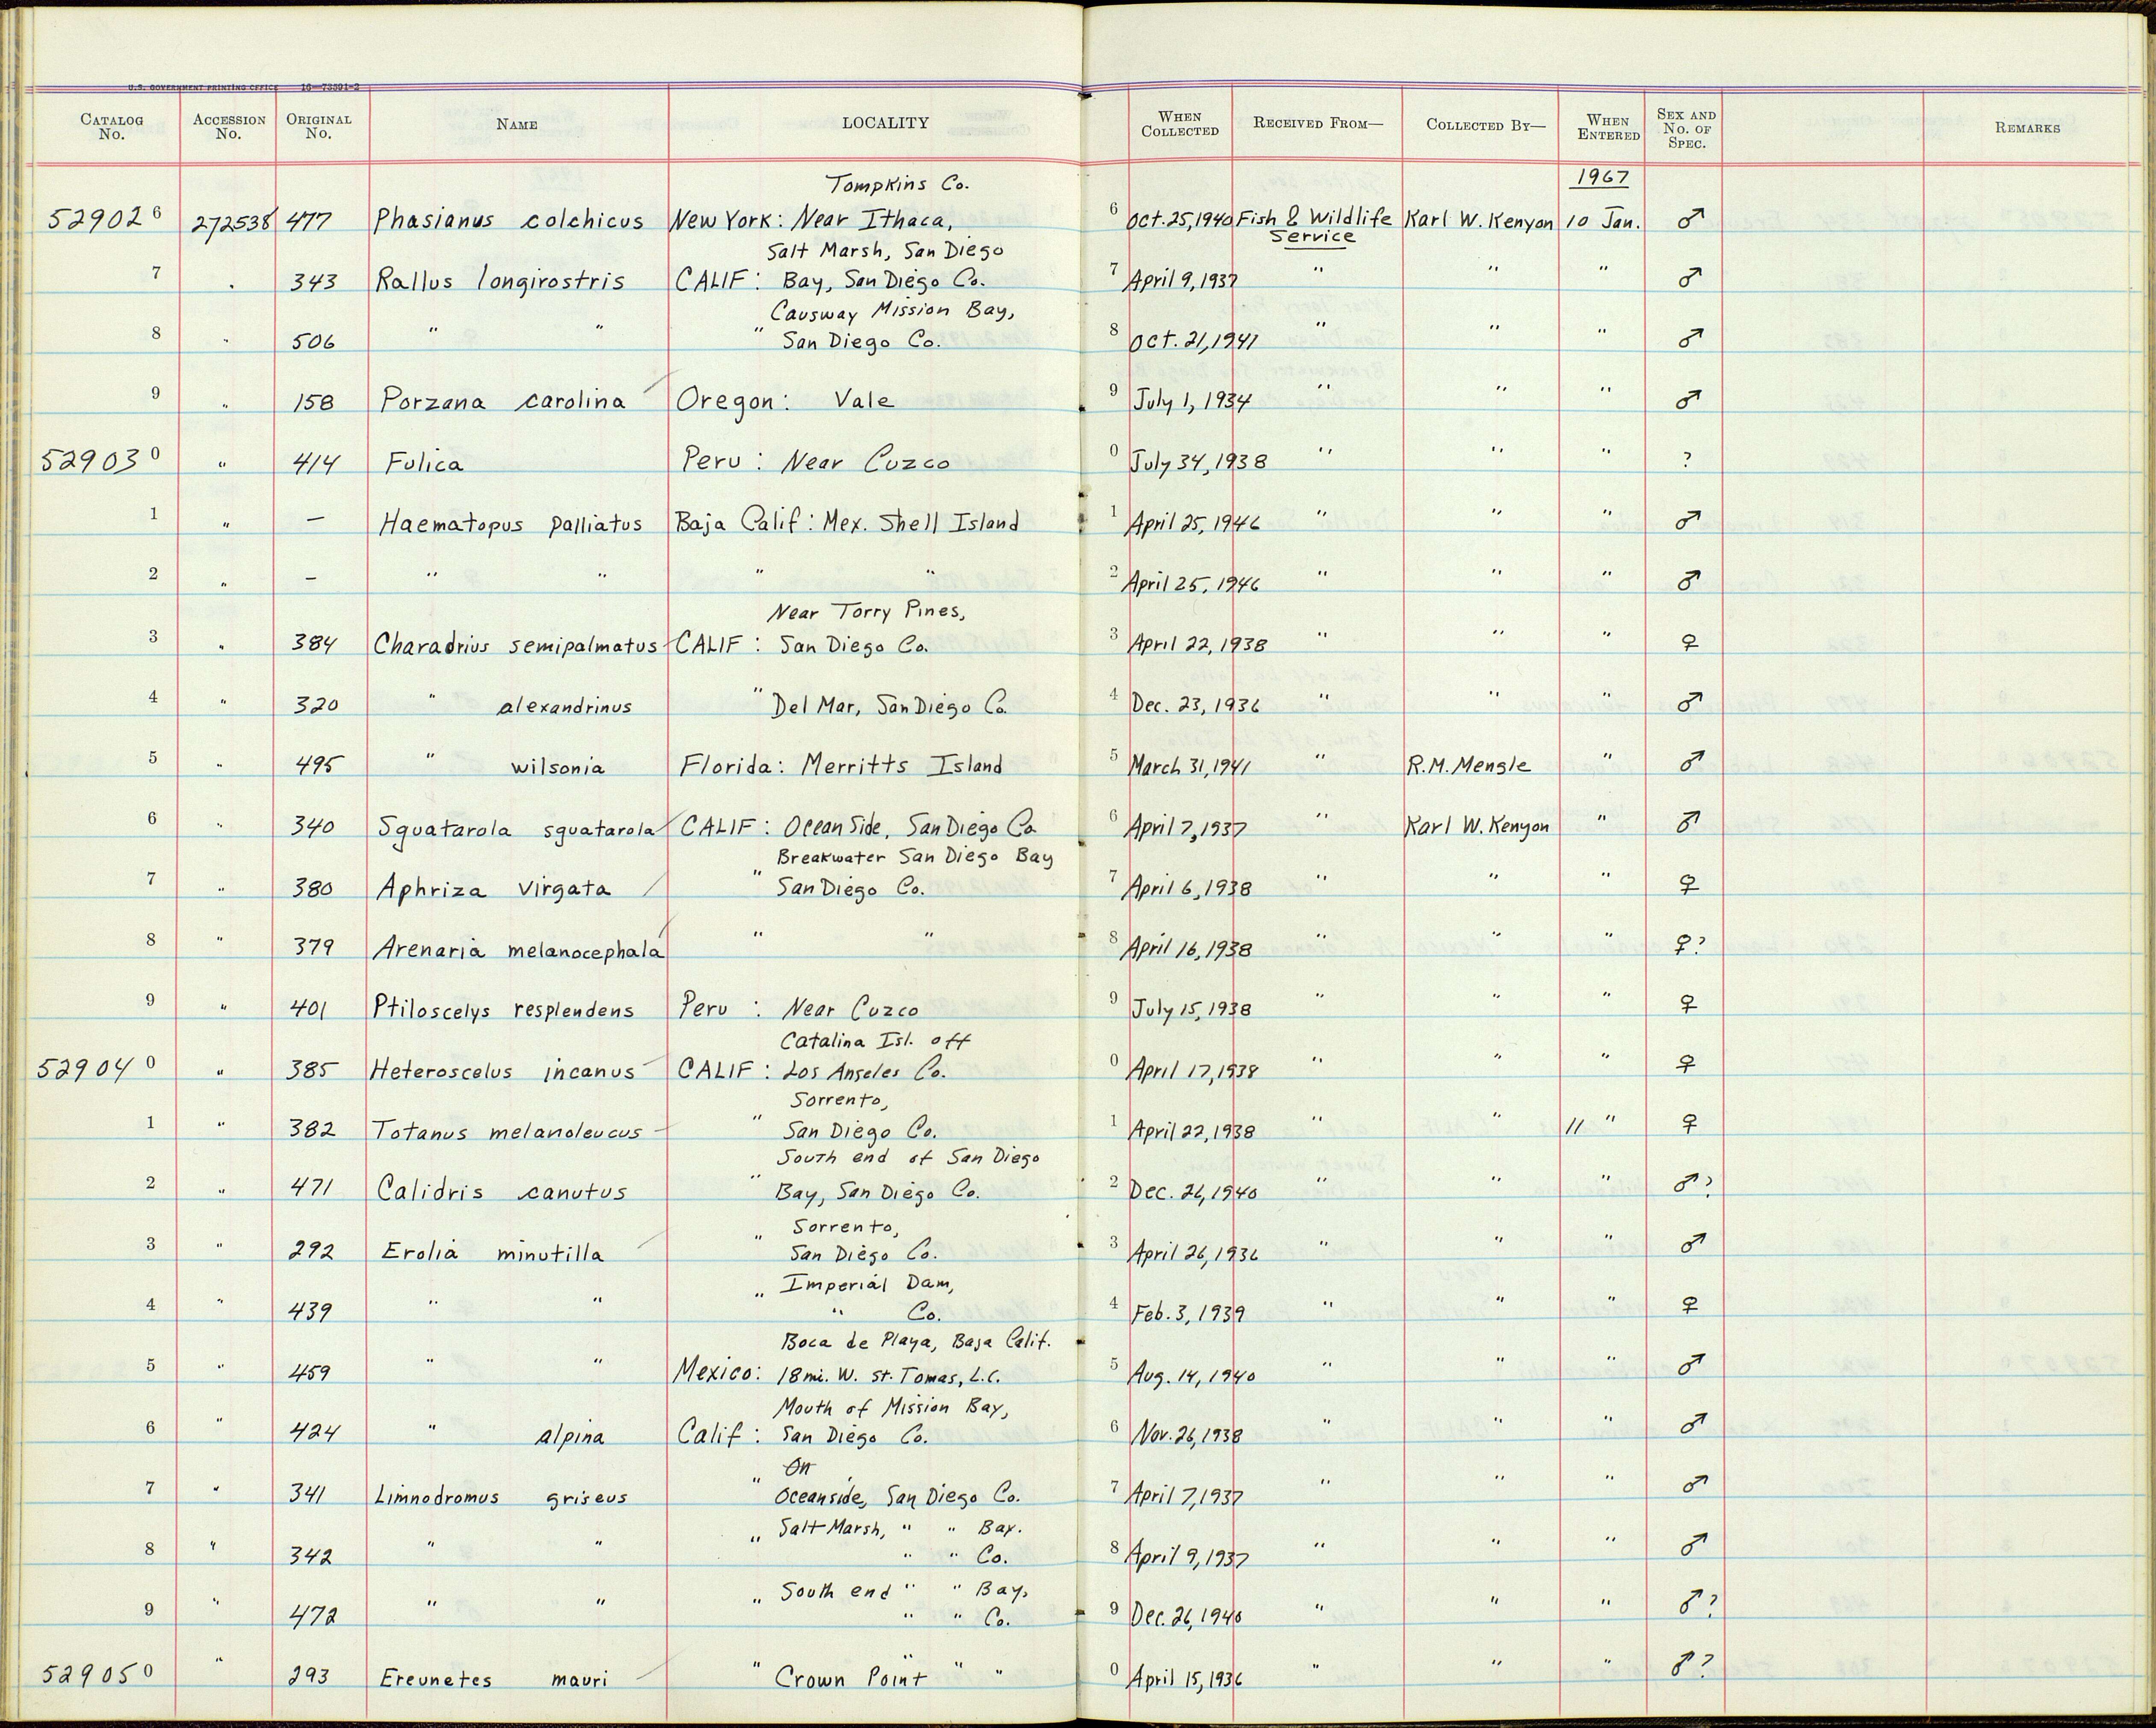 U.S. GOVERNMENT PRINTING OFFICE 16—73301-2
CATALOG No. ACCESSION No. ORIGINAL No. NAME LOCALITY WHEN COLLECTED RECEIVED FROM— COLLECTED BY— WHEN ENTERED SEX AND No. OF SPEC. REMARKS
Tompkins Co. 1967
529026 272538 477 Phasianus colchicus New York: Near Ithaca, 6 Oct. 25, 1940 Fish & Wildlife Service Karl W. Kenyon 10 Jan. ♂
Salt Marsh, San Diego
7 " 343 Rallus longirostris CALIF: Bay, San Diego Co. 7 April 9, 1937 " " " ♂
Causway Mission Bay,
8 " 506 " " " San Diego Co. 8 Oct. 21, 1941 " " " ♂
9 " 158 Porzana carolina Oregon: Vale 9 July 1, 1934 " " " ♂
529030 " 414 Fulica Peru: Near Cuzco 0 July 34, 1938 " " " ?
1 " — Haematopus palliatus Baja Calif: Mex. Shell Island 1 April 25, 1946 " " " ♂
2 " — " " " " 2 April 25, 1946 " " " ♂
Near Torry Pines,
3 " 384 Charadrius semipalmatus CALIF: San Diego Co. 3 April 22, 1938 " " " ♀
4 " 320 " alexandrinus " Del Mar, San Diego Co. 4 Dec. 23, 1936 " " " ♂
5 " 495 " wilsonia Florida: Merritts Island 5 March 31, 1941 " R.M. Mengle " ♂
6 " 340 Squatarola squatarola CALIF: Ocean Side, San Diego Co. 6 April 7, 1937 " Karl W. Kenyon " ♂
Breakwater San Diego Bay
7 " 380 Aphriza virgata " San Diego Co. 7 April 6, 1938 " " " ♀
8 " 379 Arenaria melanocephala " " 8 April 16, 1938 " " " ♀?
9 " 401 Ptiloscelys resplendens Peru: Near Cuzco 9 July 15, 1938 " " " ♀
Catalina Isl. off
529040 " 385 Heteroscelus incanus CALIF: Los Angeles Co. 0 April 17, 1938 " " " ♀
Sorrento,
1 " 382 Totanus melanoleucus " San Diego Co. 1 April 22, 1938 " " 11 " ♀
South end of San Diego
2 " 471 Calidris canutus " Bay, San Diego Co. 2 Dec. 26, 1940 " " " ♂?
Sorrento,
3 " 292 Erolia minutilla " San Diego Co. 3 April 26, 1936 " " " ♂
" Imperial Dam,
4 " 439 " " " Co. 4 Feb. 3, 1939 " " " ♀
Boca de Playa, Baja Calif.
5 " 459 " " Mexico: 18 mi. W. St. Tomas, L.C. 5 Aug. 14, 1940 " " " ♂
Mouth of Mission Bay,
6 " 424 " alpina Calif: San Diego Co. 6 Nov. 26, 1938 " " " ♂
On
7 " 341 Limnodromus griseus " Oceanside, San Diego Co. 7 April 7, 1937 " " " ♂
" Salt Marsh, " " Bay.
8 " 342 " " " " Co. 8 April 9, 1937 " " " ♂
" South end " " Bay,
9 " 472 " " " " Co. 9 Dec. 26, 1940 " " " ♂?
529050 " 293 Ereunetes mauri " Crown Point " " " 0 April 15, 1936 " " " ♂?